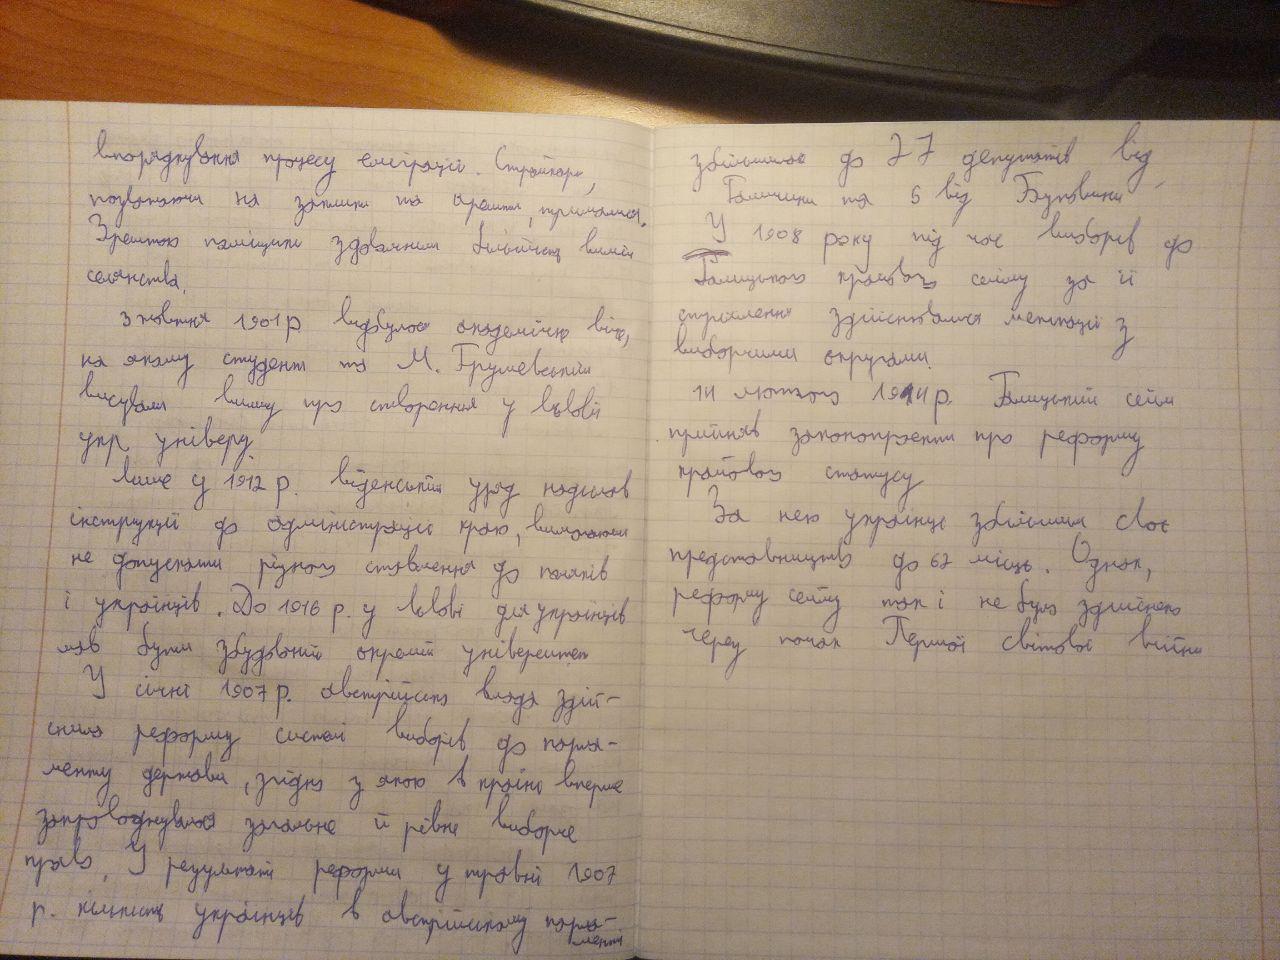 впорядкування процесу еміграції. Страйкарі,
на заклики та арешти, трималися.
Зрештою поміщики більшість вимог
селянства.
з жовтня 1901 р відбулося академічне віче,
на якому студенти та М. Грушевський
висували вимогу про створення у Львові
укр. універу.
Лише у 1912 р. віденський уряд надіслав
інструкції до адміністрації краю, вимагаючи
не допускати різного ставлення до поляків
і українців. До 1916 р. у Львові для українців
мав бути збудований окремий університет
У січні 1907 р. австрійська влада здій-
снила реформу системи виборів до парла-
менту держави, згідно з якою в країні вперше
запроваджувалося загальне й рівне виборче
право. У результаті реформи у травні 1907
р. кількість українців в австрійському парла-
менті
збільшилась до 27 депутатів від
Галичини та 5 від Буковини
У 1908 року під час виборів до
Галицького крайового сейму за її
здійснювалися махінації з
виборчими округами.
14 лютого 1914 р. Галицький сейм
прийняв законопроекти про реформу
крайового статусу
За нею українці збільшили своє
представництво до 62 місць. Однак,
реформу сейму так і не було здійснено
через початок Першої світової війни